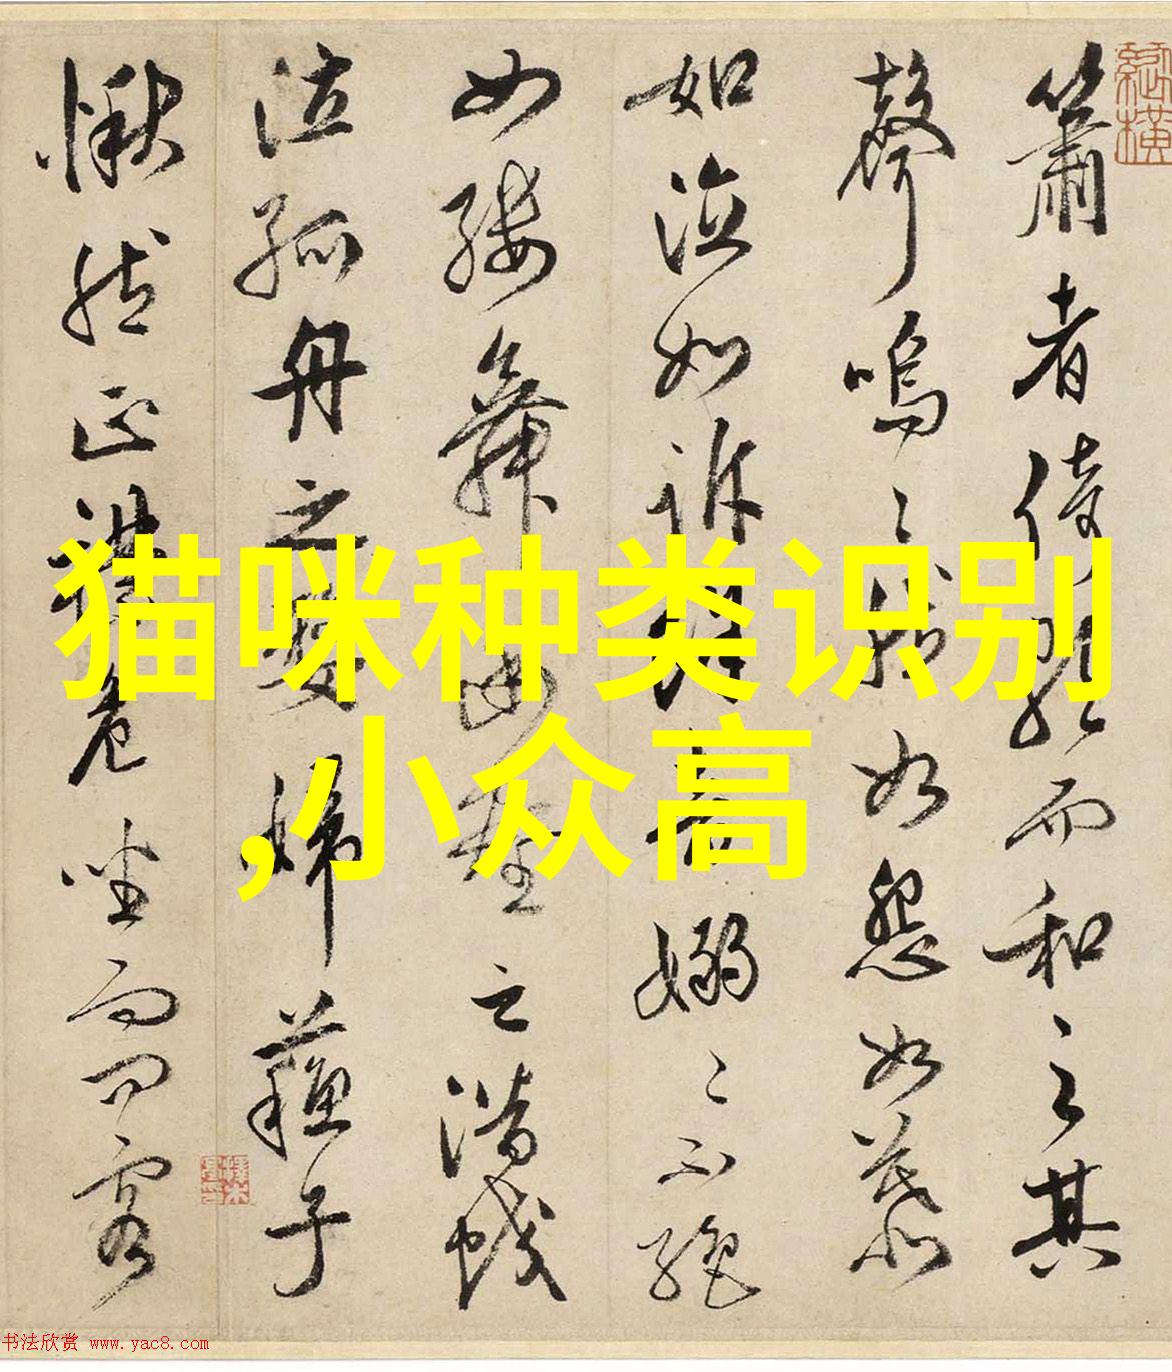 簫者倚歌而和之其
聲嗚〻然如怨如慕
如泣如訴餘音嫋〻不絕
如縷舞幽壑之潛蛟
泣孤舟之嫠婦蘇子
愀然正襟危坐而問客
猫咪种类识别
,小众高
书法欣赏 www.yac8.com